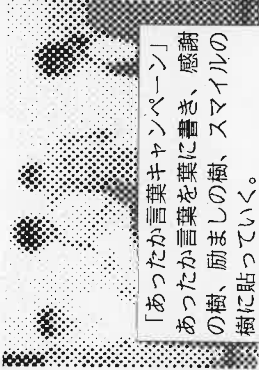 「あったか言葉キャンペーン」
あったか言葉を葉に書き、感謝
の樹、励ましの樹、スマイルの
樹に貼っていく。